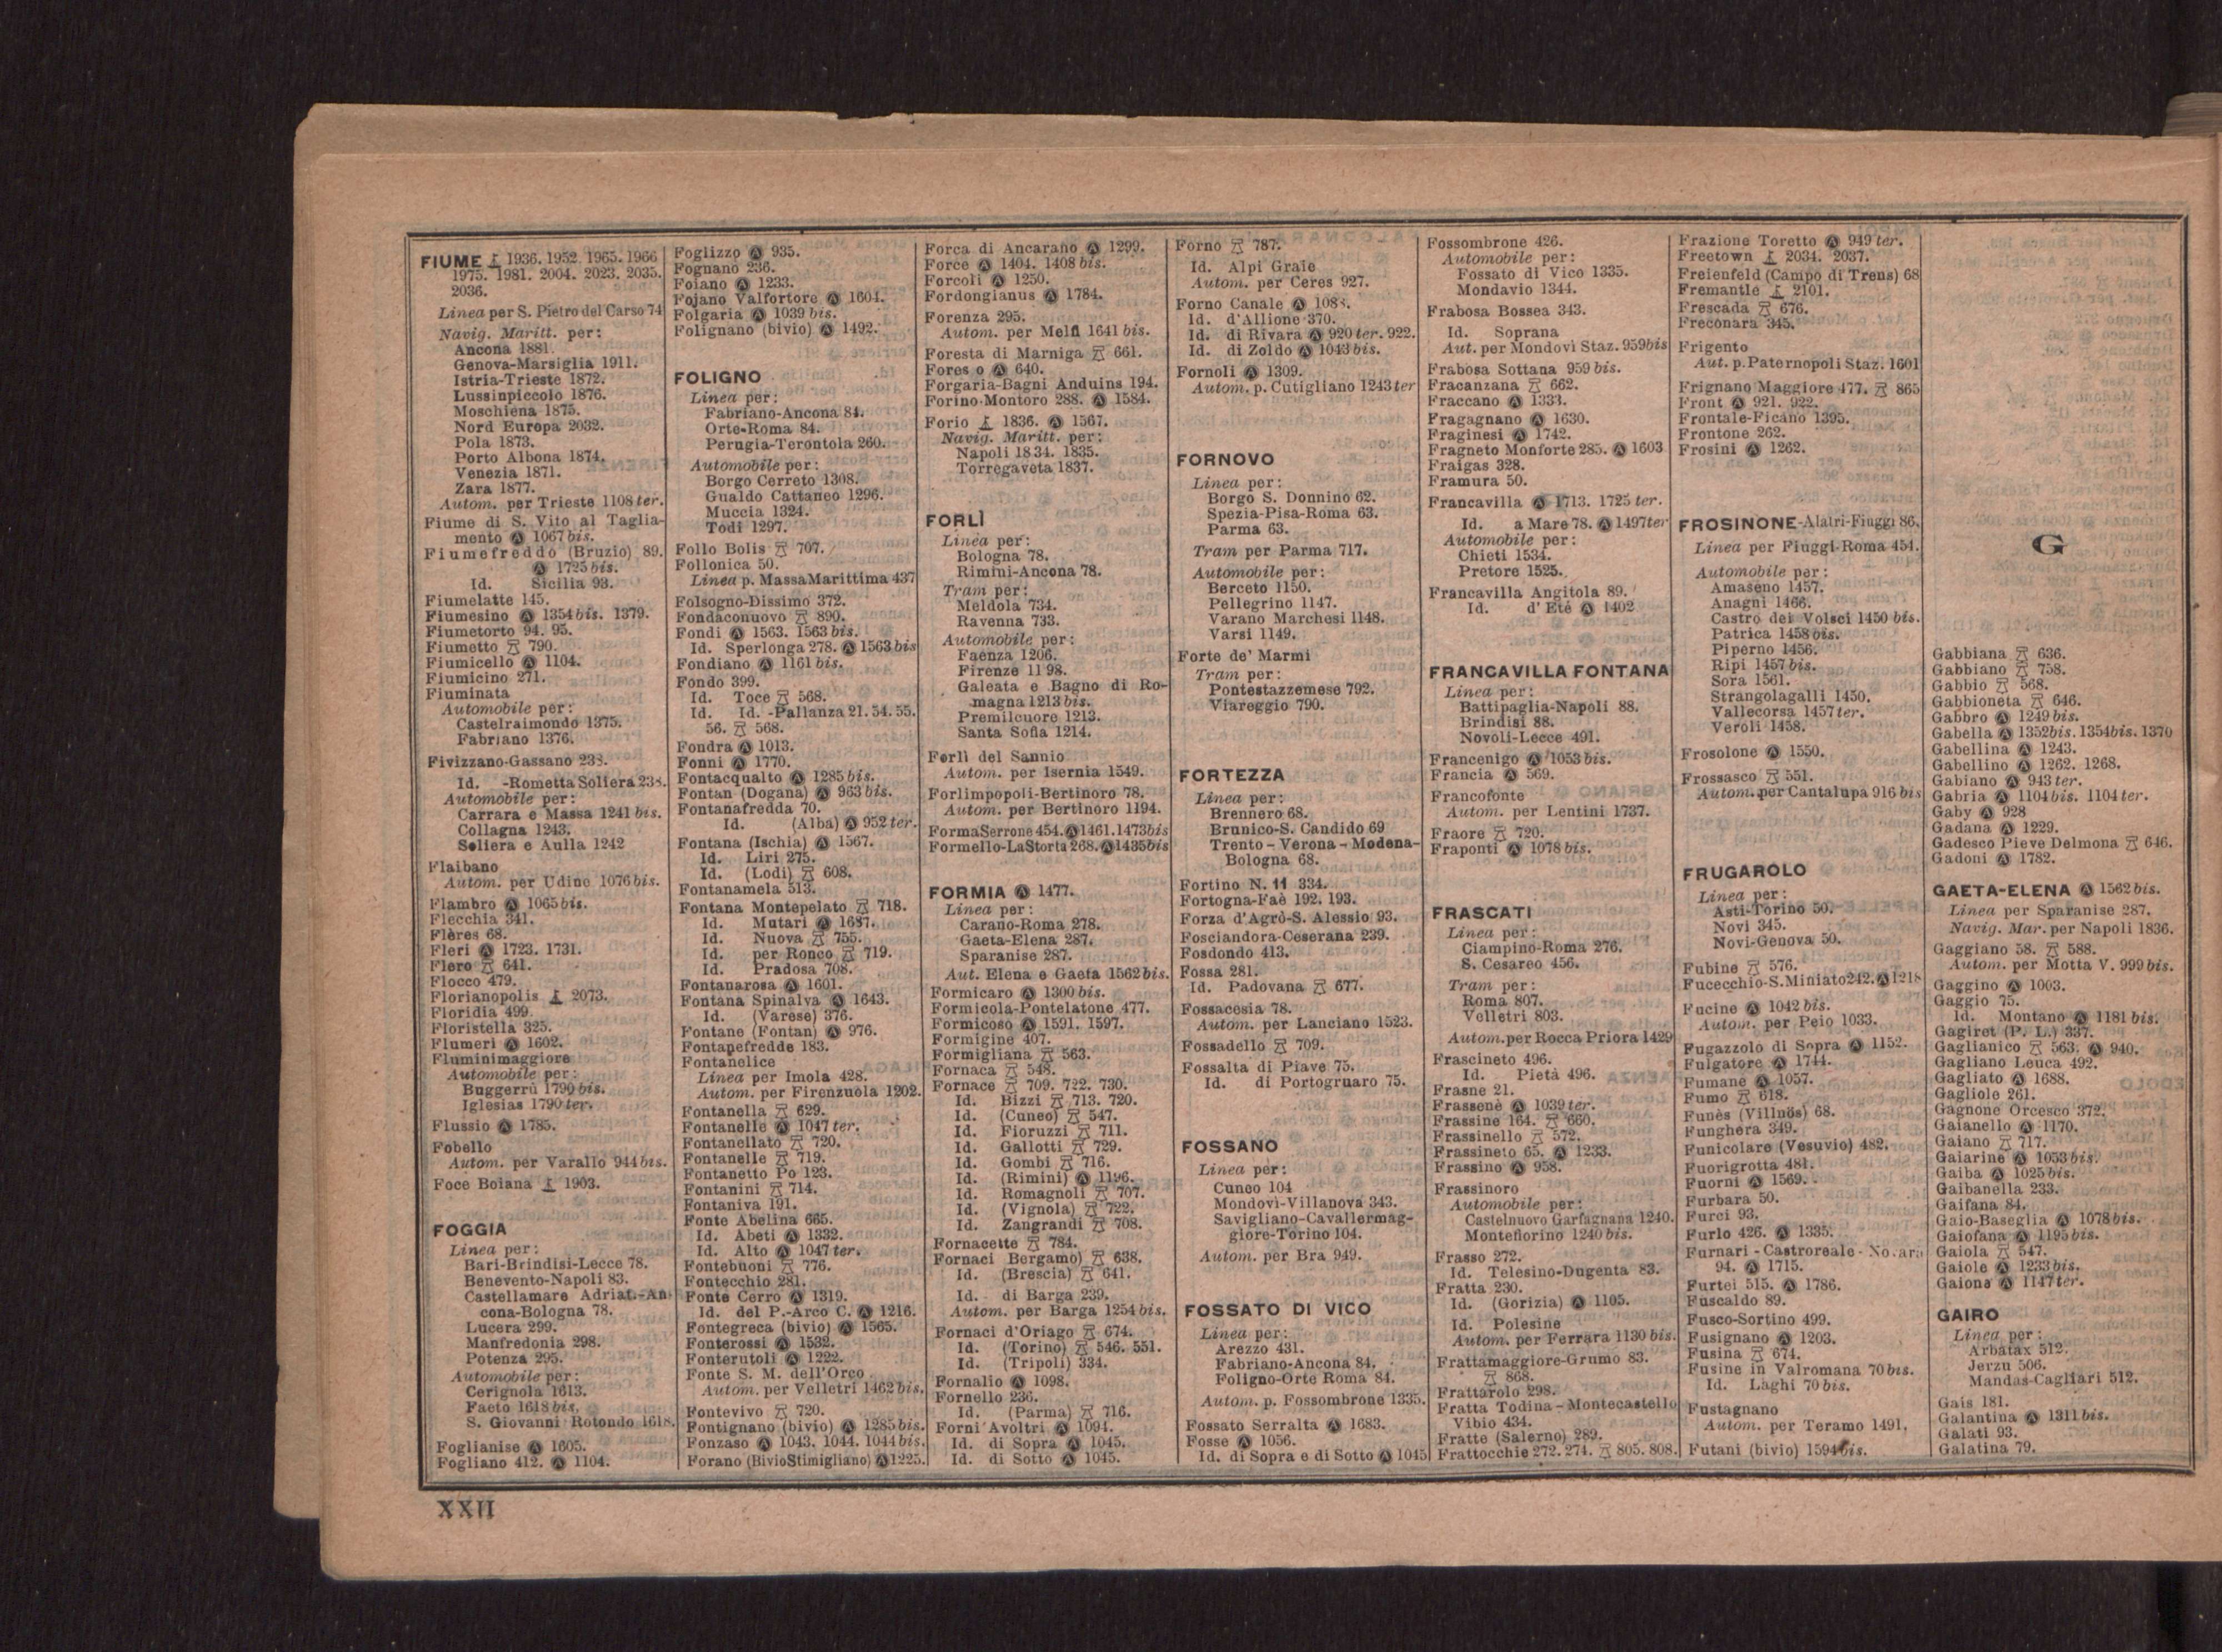 FIUME ⚓ 1936. 1952. 1965. 1966
1975. 1981. 2004. 2023. 2035.
2036.
Linea per S. Pietro del Carso 74
Navig. Maritt. per:
Ancona 1881.
Genova-Marsiglia 1911.
Istria-Trieste 1872.
Lussinpiccolo 1876.
Moschiena 1875.
Nord Europa 2032.
Pola 1873.
Porto Albona 1874.
Venezia 1871.
Zara 1877.
Autom. per Trieste 1108 ter.
Fiume di S. Vito al Taglia-
mento Ⓐ 1067 bis.
Fiumefreddo (Bruzio) 89.
Ⓐ 1725 bis.
Id. Sicilia 93.
Fiumelatte 145.
Fiumesino Ⓐ 1354 bis. 1379.
Fiumetorto 94. 95.
Fiumetto 790.
Fiumicello Ⓐ 1104.
Fiumicino 271.
Fiuminata
Automobile per:
Castelraimondo 1375.
Fabriano 1376.
Fivizzano-Gassano 238.
Id. -Rometta Soliera 238.
Automobile per:
Carrara e Massa 1241 bis.
Collagna 1243.
Soliera e Aulla 1242
Flaibano
Autom. per Udine 1076 bis.
Flambro Ⓐ 1065 bis.
Flecchia 341.
Flères 68.
Fleri Ⓐ 1723. 1731.
Flero 641.
Flocco 479.
Florianopolis ⚓ 2073.
Floridia 499.
Floristella 325.
Flumeri Ⓐ 1602.
Fluminimaggiore
Automobile per:
Buggerrù 1790 bis.
Iglesias 1790 ter.
Flussio Ⓐ 1785.
Fobello
Autom. per Varallo 944 bis.
Foce Boiana ⚓ 1903.
FOGGIA
Linea per:
Bari-Brindisi-Lecce 78.
Benevento-Napoli 83.
Castellamare Adriat.-An-
cona-Bologna 78.
Lucera 299.
Manfredonia 298.
Potenza 295.
Automobile per:
Cerignola 1613.
Faeto 1618 bis.
S. Giovanni Rotondo 1618.
Foglianise Ⓐ 1605.
Fogliano 412. Ⓐ 1104.
Foglizzo Ⓐ 935.
Fognano 236.
Foiano Ⓐ 1233.
Fojano Valfortore Ⓐ 1604.
Folgaria Ⓐ 1039 bis.
Folignano (bivio) Ⓐ 1492.
FOLIGNO
Linea per:
Fabriano-Ancona 84.
Orte-Roma 84.
Perugia-Terontola 260.
Automobile per:
Borgo Cerreto 1308.
Gualdo Cattaneo 1296.
Muccia 1324.
Todi 1297.
Follo Bolis 707.
Follonica 50.
Linea p. Massa Marittima 437
Folsogno-Dissimo 372.
Fondaconuovo 890.
Fondi Ⓐ 1563. 1563 bis.
Id. Sperlonga 278. Ⓐ 1563 bis
Fondiano Ⓐ 1161 bis.
Fondo 399.
Id. Toce 568.
Id. Id. -Pallanza 21. 54. 55.
56. 568.
Fondra Ⓐ 1013.
Fonni Ⓐ 1770.
Fontacqualto Ⓐ 1285 bis.
Fontan (Dogana) Ⓐ 963 bis.
Fontanafredda 70.
Id. (Alba) Ⓐ 952 ter.
Fontana (Ischia) Ⓐ 1567.
Id. Liri 275.
Id. (Lodi) 608.
Fontanamela 513.
Fontana Montepelato 718.
Id. Mutari Ⓐ 1687.
Id. Nuova 755.
Id. per Ronco 719.
Id. Pradosa 708.
Fontanarosa Ⓐ 1601.
Fontana Spinalva Ⓐ 1643.
Id. (Varese) 376.
Fontane (Fontan) Ⓐ 976.
Fontanefredde 183.
Fontanelice
Linea per Imola 428.
Autom. per Firenzuola 1202.
Fontanella 629.
Fontanelle Ⓐ 1047 ter.
Fontanellato 720.
Fontanelle 719.
Fontanetto Po 123.
Fontanini 714.
Fontaniva 191.
Fonte Abelina 665.
Id. Abeti Ⓐ 1332.
Id. Alto Ⓐ 1047 ter.
Fontebuoni 776.
Fontecchio 281.
Fonte Cerro Ⓐ 1319.
Id. del P.-Arco C. Ⓐ 1216.
Fontegreca (bivio) Ⓐ 1565.
Fonterossi Ⓐ 1532.
Fonterutoli Ⓐ 1222.
Fonte S. M. dell'Orco
Autom. per Velletri 1462 bis.
Fontevivo 720.
Fontignano (bivio) Ⓐ 1285 bis.
Fonzaso Ⓐ 1043. 1044. 1044 bis.
Forano (Bivio Stimigliano) Ⓐ 1225.
Forca di Ancarano Ⓐ 1299.
Force Ⓐ 1404. 1408 bis.
Forcoli Ⓐ 1250.
Fordongianus Ⓐ 1784.
Forenza 295.
Autom. per Melfi 1641 bis.
Foresta di Marniga 661.
Fores o Ⓐ 640.
Forgaria-Bagni Anduins 194.
Forino-Montoro 288. Ⓐ 1584.
Forio ⚓ 1836. Ⓐ 1567.
Navig. Maritt. per:
Napoli 1834. 1835.
Torregaveta 1837.
FORLÌ
Linea per:
Bologna 78.
Rimini-Ancona 78.
Tram per:
Meldola 734.
Ravenna 733.
Automobile per:
Faenza 1206.
Firenze 1198.
Galeata e Bagno di Ro-
magna 1213 bis.
Premilcuore 1213.
Santa Sofia 1214.
Forlì del Sannio
Autom. per Isernia 1549.
Forlimpopoli-Bertinoro 78.
Autom. per Bertinoro 1194.
Forma Serrone 454. Ⓐ 1461. 1473 bis
Formello-La Storta 268. Ⓐ 1435 bis
FORMIA Ⓐ 1477.
Linea per:
Carano-Roma 278.
Gaeta-Elena 287.
Sparanise 287.
Aut. Elena e Gaeta 1562 bis.
Formicaro Ⓐ 1300 bis.
Formicola-Pontelatone 477.
Formicoso Ⓐ 1591. 1597.
Formigine 407.
Formigliana 563.
Fornaca 548.
Fornace 709. 722. 730.
Id. Bizzi 713. 720.
Id. (Cuneo) 547.
Id. Fioruzzi 711.
Id. Gallotti 729.
Id. Gombi 716.
Id. (Rimini) Ⓐ 1196.
Id. Romagnoli 707.
Id. (Vignola) 722.
Id. Zangrandi 708.
Fornacette 784.
Fornaci Bergamo) 638.
Id. (Brescia) 641.
Id. di Barga 239.
Autom. per Barga 1254 bis.
Fornaci d'Oriago 674.
Id. (Torino) 546. 551.
Id. (Tripoli) 334.
Fornalio Ⓐ 1098.
Fornello 236.
Id. (Parma) 716.
Forni Avoltri Ⓐ 1094.
Id. di Sopra Ⓐ 1045.
Id. di Sotto Ⓐ 1045.
Forno 787.
Id. Alpi Graie
Autom. per Ceres 927.
Forno Canale Ⓐ
Id. d'Allione 370.
Id. di Rivara Ⓐ 920 ter. 922.
Id. di Zoldo Ⓐ 1043 bis.
Fornoli Ⓐ 1309.
Autom. p. Cutigliano 1243 ter
FORNOVO
Linea per:
Borgo S. Donnino 62.
Spezia-Pisa-Roma 63.
Parma 63.
Tram per Parma 717.
Automobile per:
Berceto 1150.
Pellegrino 1147.
Varano Marchesi 1148.
Varsi 1149.
Forte de' Marmi
Tram per:
Pontestazzemese 792.
Viareggio 790.
FORTEZZA
Linea per:
Brennero 68.
Brunico-S. Candido 69
Trento-Verona-Modena-
Bologna 68.
Fortino N. 11 334.
Fortogna-Faè 192. 193.
Forza d'Agrò-S. Alessio 93.
Fosciandora-Ceserana 239.
Fosdondo 413.
Fossa 281.
Id. Padovana 677.
Fossacesia 78.
Autom. per Lanciano 1523.
Fossadello 709.
Fossalta di Piave 75.
Id. di Portogruaro 75.
FOSSANO
Linea per:
Cuneo 104
Mondovì-Villanova 343.
Savigliano-Cavallermag-
giore-Torino 104.
Autom. per Bra 949.
FOSSATO DI VICO
Linea per:
Arezzo 431.
Fabriano-Ancona 84.
Foligno-Orte Roma 84.
Autom. p. Fossombrone 1335.
Fossato Serralta Ⓐ 1683.
Fosse Ⓐ 1056.
Id. di Sopra e di Sotto Ⓐ 1045
Fossombrone 426.
Automobile per:
Fossato di Vico 1335.
Mondavio 1344.
Frabosa Bossea 343.
Id. Soprana
Aut. per Mondovì Staz. 959 bis
Frabosa Sottana 959 bis.
Fracanzana 662.
Fraccano Ⓐ 1333.
Fragagnano Ⓐ 1630.
Fraginesi Ⓐ 1742.
Fragneto Monforte 285. Ⓐ 1603
Fraigas 328.
Framura 50.
Francavilla Ⓐ 1713. 1725 ter.
Id. a Mare 78. Ⓐ 1497 ter
Automobile per:
Chieti 1534.
Pretore 1525.
Francavilla Angitola 89.
Id. d'Ete Ⓐ 1402
FRANCAVILLA FONTANA
Linea per:
Battipaglia-Napoli 88.
Brindisi 88.
Novoli-Lecce 491.
Francenigo Ⓐ 1053 bis.
Francia Ⓐ 569.
Francofonte
Autom. per Lentini 1737.
Fraore 720.
Fraponti Ⓐ 1078 bis.
FRASCATI
Linea per:
Ciampino-Roma 276.
S. Cesareo 456.
Tram per:
Roma 807.
Velletri 803.
Autom. per Rocca Priora 1429
Frascineto 496.
Id. Pietà 496.
Frasne 21.
Frassenè Ⓐ 1039 ter.
Frassine 164. 660.
Frassinello 572.
Frassineto 65. Ⓐ 1233.
Frassino Ⓐ 958.
Frassinoro
Automobile per:
Castelnuovo Garfagnana 1240.
Montefiorino 1240 bis.
Frasso 272.
Id. Telesino-Dugenta 83.
Fratta 230.
Id. (Gorizia) Ⓐ 1105.
Id. Polesine
Autom. per Ferrara 1130 bis.
Frattamaggiore-Grumo 83.
868.
Frattarolo 298.
Fratta Todina-Montecastello
Vibio 434.
Fratte (Salerno) 289.
Frattocchie 272. 274. 805. 808.
Frazione Toretto Ⓐ 949 ter.
Freetown ⚓ 2034. 2037.
Freienfeld (Campo di Trens) 68
Fremantle ⚓ 2101.
Frescada 676.
Freconara 345.
Frigento
Aut. p. Paternopoli Staz. 1601
Frignano Maggiore 477. 865
Front Ⓐ 921. 922.
Frontale-Ficano 1395.
Frontone 262.
Frosini Ⓐ 1262.
FROSINONE-Alatri-Fiuggi 86.
Linea per Fiuggi-Roma 454.
Automobile per:
Amaseno 1457.
Anagni 1466.
Castro dei Volsci 1450 bis.
Patrica 1458 bis.
Piperno 1456.
Ripi 1457 bis.
Sora 1561.
Strangolagalli 1450.
Vallecorsa 1457 ter.
Veroli 1458.
Frosolone Ⓐ 1550.
Frossasco 551.
Autom. per Cantalupa 916 bis
FRUGAROLO
Linea per:
Asti-Torino 50.
Novi 345.
Novi-Genova 50.
Fubine 576.
Fucecchio-S. Miniato 242. Ⓐ 1218
Fucine Ⓐ 1042 bis.
Autom. per Peio 1033.
Fugazzolo di Sopra Ⓐ 1152.
Fulgatore Ⓐ 1744.
Fumane Ⓐ 1057.
Fumo 618.
Funès (Villnös) 68.
Funghera 349.
Funicolare (Vesuvio) 482.
Fuorigrotta 481.
Fuorni Ⓐ 1569.
Furbara 50.
Furci 93.
Furlo 426. Ⓐ 1335.
Furnari-Castroreale-Novara
94. Ⓐ 1715.
Furtei 515. Ⓐ 1786.
Fuscaldo 89.
Fusco-Sortino 499.
Fusignano Ⓐ 1203.
Fusina 674.
Fusine in Valromana 70 bis.
Id. Laghi 70 bis.
Fustagnano
Autom. per Teramo 1491.
Futani (bivio) 1594 bis.
G
Gabbiana 636.
Gabbiano 758.
Gabbio 568.
Gabbioneta 646.
Gabbro Ⓐ 1249 bis.
Gabella Ⓐ 1352 bis. 1354 bis. 1370
Gabellina Ⓐ 1243.
Gabellino Ⓐ 1262. 1268.
Gabiano Ⓐ 943 ter.
Gabria Ⓐ 1104 bis. 1104 ter.
Gaby Ⓐ 928
Gadana Ⓐ 1229.
Gadesco Pieve Delmona 646.
Gadoni Ⓐ 1782.
GAETA-ELENA Ⓐ 1562 bis.
Linea per Sparanise 287.
Navig. Mar. per Napoli 1836.
Gaggiano 58. 588.
Autom. per Motta V. 999 bis.
Gaggino Ⓐ 1003.
Gaggio 75.
Id. Montano Ⓐ 1181 bis.
Gagiret (P. L.) 337.
Gaglianico 563. Ⓐ 940.
Gagliano Leuca 492.
Gagliato Ⓐ 1688.
Gagliole 261.
Gagnone Orcesco 372.
Gaianello Ⓐ 1170.
Gaiano 717.
Gaiarine Ⓐ 1053 bis.
Gaiba Ⓐ 1025 bis.
Gaibanella 233.
Gaifana 84.
Gaio-Baseglia Ⓐ 1078 bis.
Gaiofana Ⓐ 1195 bis.
Gaiola 547.
Gaiole Ⓐ 1233 bis.
Gaione Ⓐ 1147 ter.
GAIRO
Linea per:
Arbatax 512.
Jerzu 506.
Mandas-Cagliari 512.
Gais 181.
Galantina Ⓐ 1311 bis.
Galati 93.
Galatina 79.
XXII